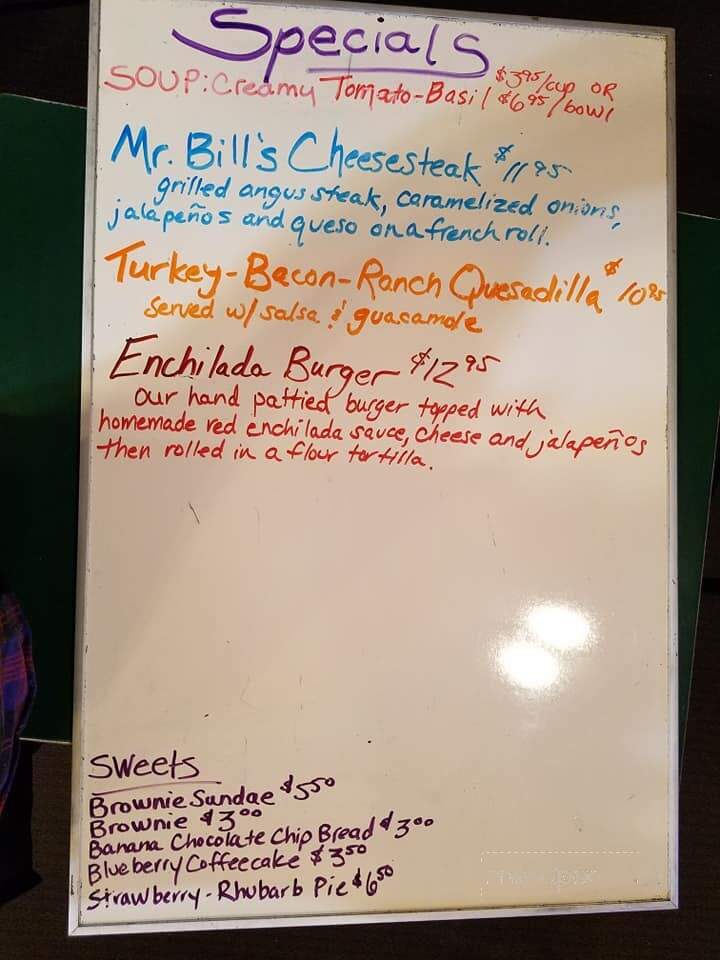 Specials
SOUP: Creamy Tomato-Basil $3.95/cup OR
$6.95/bowl
Mr. Bill's Cheesesteak $11.95
grilled angus steak, caramelized onions,
jalapeños and queso on a french roll.
Turkey-Bacon-Ranch Quesadilla $10.95
served w/ salsa & guacamole
Enchilada Burger $12.95
our hand pattied burger topped with
homemade red enchilada sauce, cheese and jalapeños
then rolled in a flour tortilla.
Sweets
Brownie Sundae $5.50
Brownie $3.00
Banana Chocolate Chip Bread $3.00
Blueberry Coffeecake $3.50
Strawberry-Rhubarb Pie $6.50